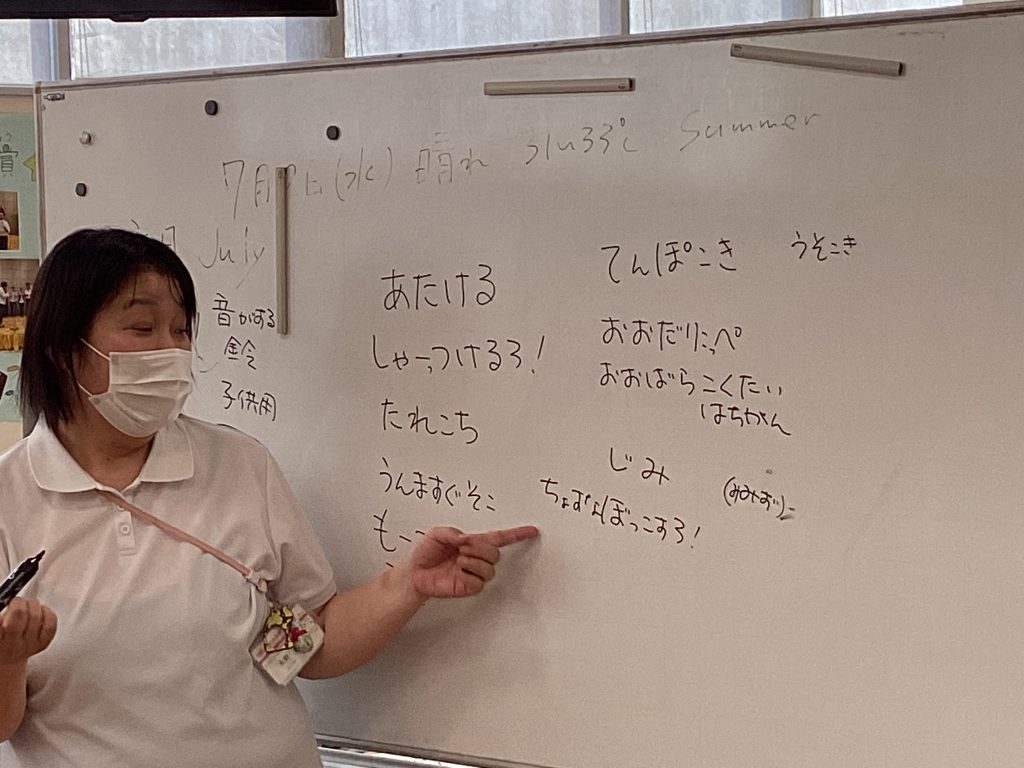 賞
7月 日(水) 晴れ 31い33℃ Summer
July
音がする
鈴
子供用
あたける
しゃっつけるろ！
たれこち
うんますぐそこ
もっ
てんぽこき うそこき
おおだりこっぺ
おおばらこくたい
はちかん
じみ
(みみずい)
ぼっこすろ！